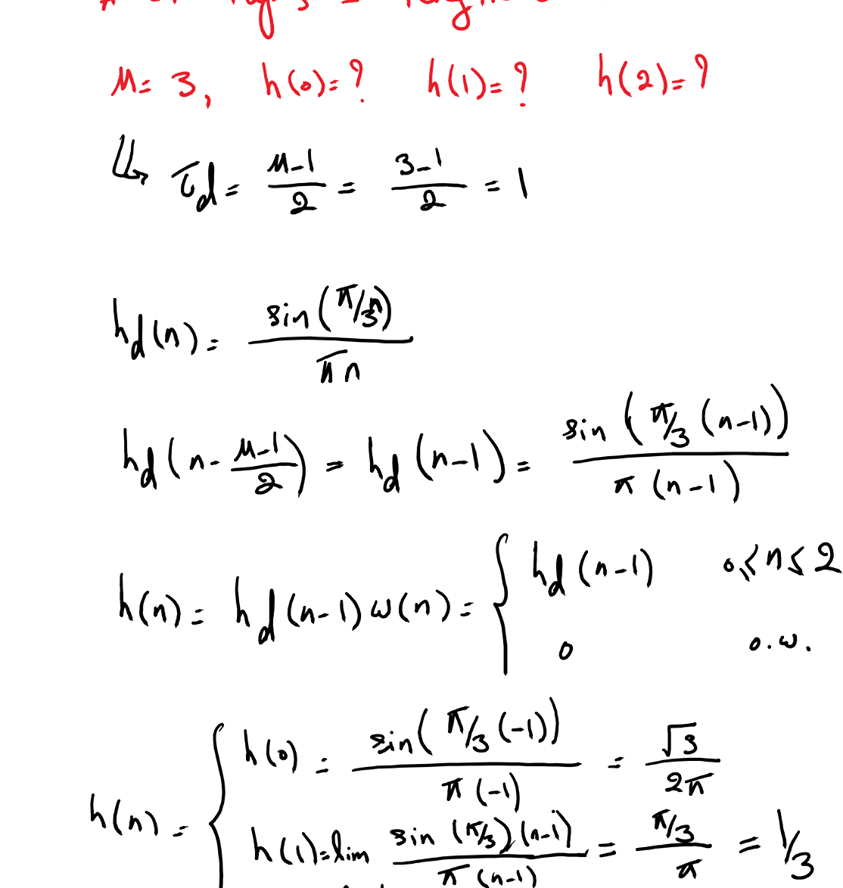 M = 3, h(0)=? h(1)=? h(2)=?
↳ τd = (M-1)/2 = (3-1)/2 = 1
hd(n) = sin(π/3 n) / πn
hd(n - (M-1)/2) = hd(n-1) = sin(π/3 (n-1)) / π(n-1)
h(n) = hd(n-1) w(n) = { hd(n-1) 0≤n≤2
0 o.w.
h(n) = { h(0) = sin(π/3 (-1)) / π(-1) = √3 / 2π
h(1) = lim sin(π/3)(n-1) / π(n-1) = π/3 / π = 1/3